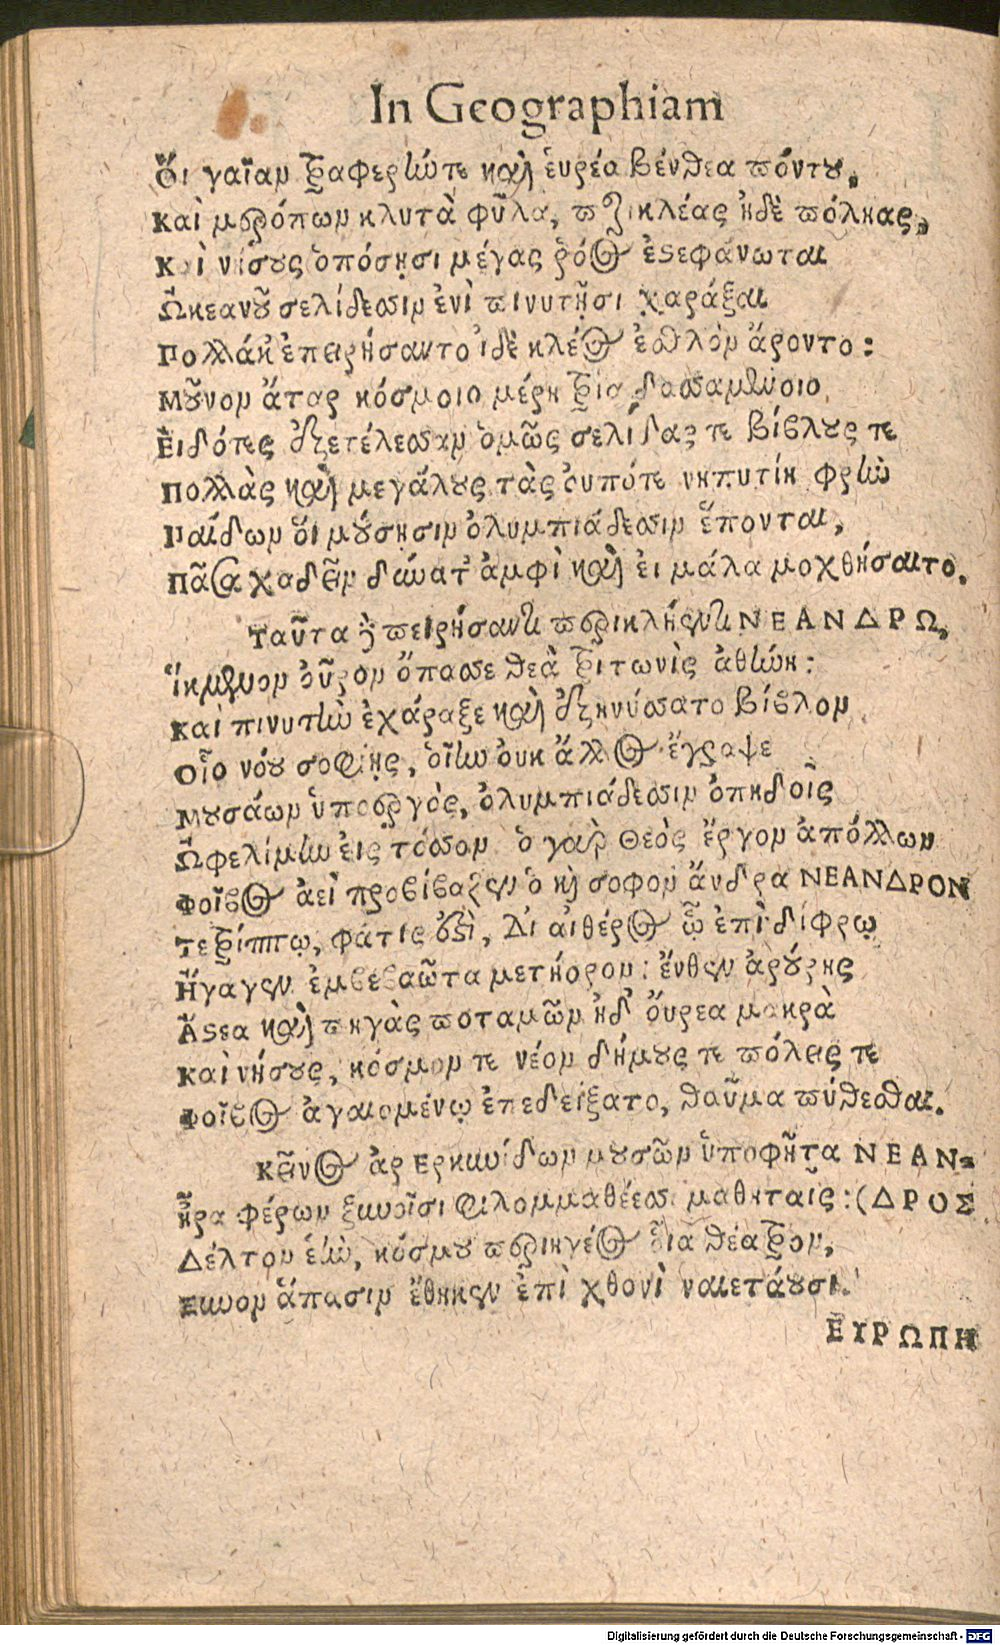 In Geographiam
Ὅι γαῖαν τραφερὼύτε καὶ ἐυρέα βένθεα πόντου,
Καὶ μερόπων κλυτὰ φῦλα, πτολικλέας ἠδὲ πόληας,
Καὶ νήσους ὁπόσῃσι μέγας ῥόος ἐστεφάνωται
Ὠκεανοῦ σελίδεσσιν ἐνὶ πινυτῇσι χαράξαι
Πολλάκ' ἐπειρήσαντο ἰδὲ κλέος ἐσθλὸν ἄροντο:
Μοῦνον ἄταρ κόσμοιο μέρη τρία
Ἐιδότες ἐξετέλεσσαν ὁμῶς σελίδας τε βίβλους τε
Πολλὰς καὶ μεγάλους τὰς ὀυπότε νηπυτίη φρὴν
Παίδων ὅι μούσησιν ὀλυμπιάδεσσιν ἕπονται,
Πᾶσα χαδεῖν δύνατ' ἀμφὶ καὶ ἐι μάλα μοχθήσαιτο.
Ταῦτα πειρήσαντι περικλήεντι ΝΕΑΝΔΡΩ,
ἵκμενον οὖρον ὄπασσε θεὰ τριτωνὶς ἀθήνη:
Καὶ πινυτὴν ἐχάραξε καὶ ἐξηνύσσατο βίβλον
Οἷο νόου σοφίης, ὁἵην ὀυκ ἄλλος ἔγραψε
Μουσάων ὑποεργὸς, ὀλυμπιάδεσσιν ὀπηδοῖς
Ὠφελίμην ἐις τόσσον ὁ γὰρ Θεὸς ἔργον ἀπόλλων
Φοῖβος ἀεὶ προβίβαζεν ὁ καὶ σοφὸν ἄνδρα ΝΕΑΝΔΡΟΝ
Τετρίππῳ, φάτις ἐστὶ, δι' αἰθέρος ᾧ ἐπὶ δίφρῳ
Ἤγαγεν ἐμβεβαῶτα μετήορον: ἔνθεν ἀρούρης
Ἄστεα καὶ πηγὰς ποταμῶν ἠδ' ὄυρεα μακρὰ
Καὶ νήσους, κόσμον τε νέον δήμους τε πόλεις τε
Φοῖβος ἀγαιομένῳ ἐπεδείξατο, θαῦμα πύθεσθαι.
Κεῖνος ἀρ πιερίδων μουσῶν ὑποφῆτα ΝΕΑΝ=
ἦρα φέρων ξυνοῖσι φιλομμαθέεσσι μαθηταῖς: (ΔΡΟΣ
Δέλτον ἑὴν, κόσμου περιηγέος θέατρον,
Ξυνὸν ἅπασιν ἔθηκεν ἐπὶ χθονὶ ναιετάουσι.
ΕΥΡΩΠΗ
Digitalisierung gefördert durch die Deutsche Forschungsgemeinschaft - DFG